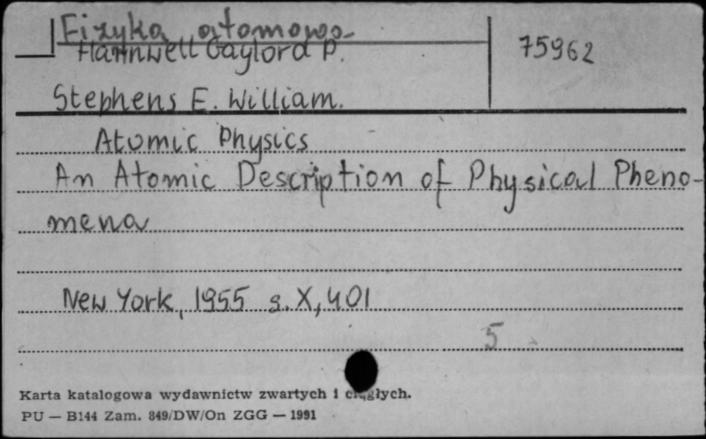 Fizyka atomowa
Harnwell Gaylord P.
75962
Stephens E. William.
Atomic Physics
An Atomic Description of Physical Pheno-
mena
New York, 1955 s. X, 401
5
Karta katalogowa wydawnictw zwartych i ciągłych.
PU — B144 Zam. 849/DW/On ZGG — 1991